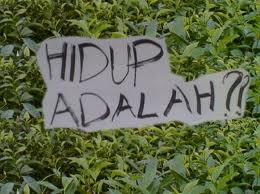 HIDUP
ADALAH??